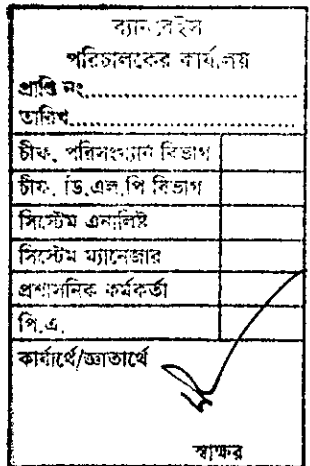 ব্যানবেইস
পরিচালকের কার্যালয়
প্রাপ্তি নং...............................
তারিখ.................................
চীফ, পরিসংখ্যান বিভাগ
চীফ, ডি.এল.পি বিভাগ
সিস্টেম এনালিষ্ট
সিস্টেম ম্যানেজার
প্রশাসনিক কর্মকর্তা
পি.এ.
কার্যার্থে/জ্ঞাতার্থে
স্বাক্ষর